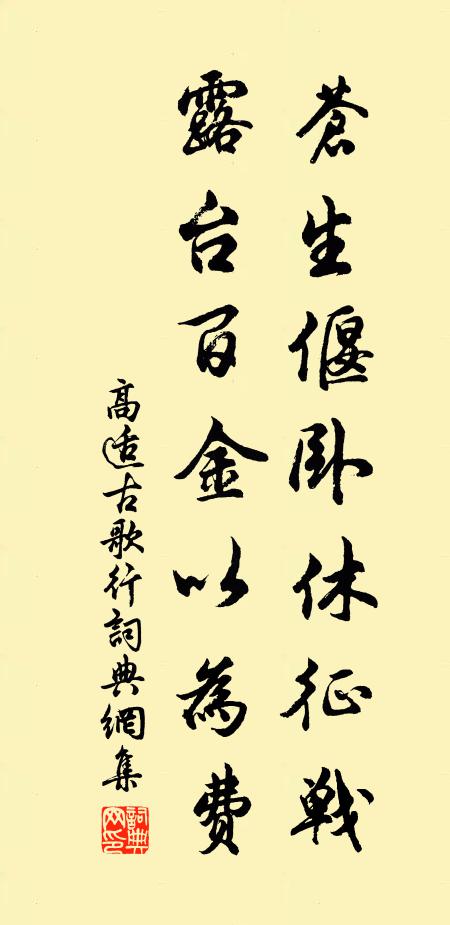 蒼生偃卧休征戰
露台百金以為費
高适古歌行詞典網集
詞典網印